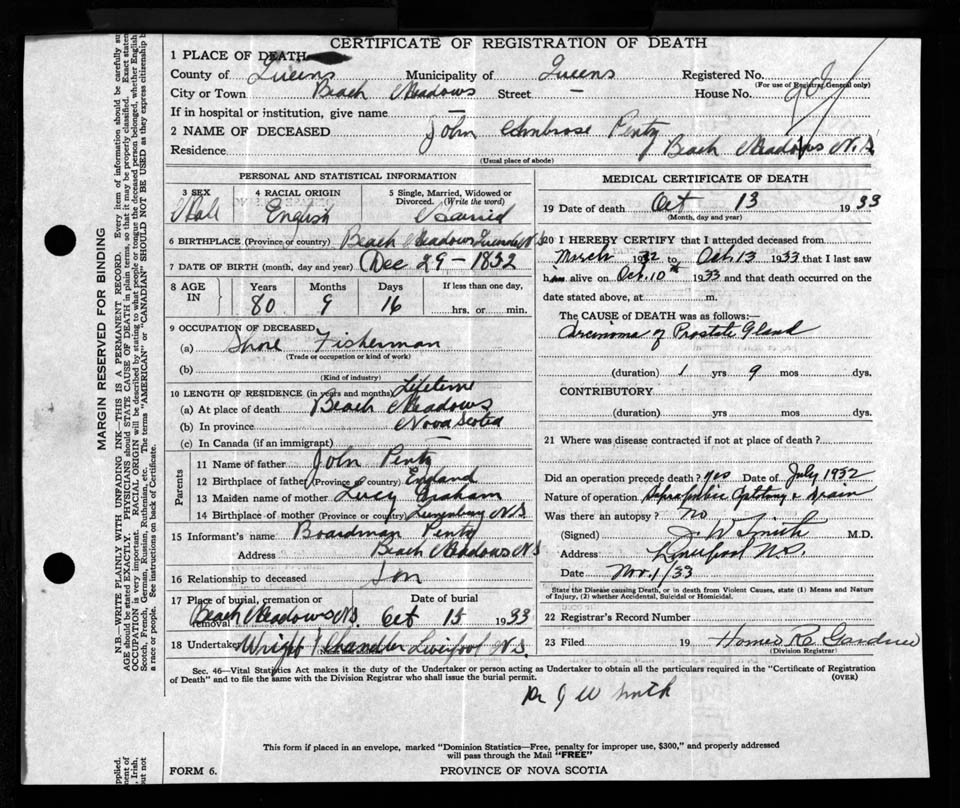 CERTIFICATE OF REGISTRATION OF DEATH
1 PLACE OF DEATH
County of Queens Municipality of Queens Registered No.
(For use of Registrar General only)
City or Town Beach Meadows Street – House No.
If in hospital or institution, give name –
2 NAME OF DECEASED John Ambrose Penty
Residence Beach Meadows N.S.
(Usual place of abode)
PERSONAL AND STATISTICAL INFORMATION
3 SEX 4 RACIAL ORIGIN 5 Single, Married, Widowed or Divorced. (Write the word)
Male English Married
6 BIRTHPLACE (Province or country) Beach Meadows Queens N.S.
7 DATE OF BIRTH (month, day and year) Dec 29 – 1832
8 AGE IN Years Months Days If less than one day,
80 9 16 hrs. or min.
9 OCCUPATION OF DECEASED
(a) Shore Fisherman
(Trade or occupation or kind of work)
(b)
(Kind of industry)
10 LENGTH OF RESIDENCE (in years and months) Lifetime
(a) At place of death Beach Meadows
(b) In province Nova Scotia
(c) In Canada (if an immigrant) –
Parents
11 Name of father John Penty
12 Birthplace of father (Province or country) England
13 Maiden name of mother Lucy Graham
14 Birthplace of mother (Province or country) Lunenburg N.S
15 Informant's name Boardman Penty
Address Beach Meadows N.S
16 Relationship to deceased Son
17 Place of burial, cremation or removal Date of burial
Beach Meadows N.S. Oct 15 1933
18 Undertaker Wright Chandler Liverpool N.S.
MEDICAL CERTIFICATE OF DEATH
19 Date of death Oct 13 1933
(Month, day and year)
20 I HEREBY CERTIFY that I attended deceased from
March 1932 to Oct. 13 1933 that I last saw
him alive on Oct. 10th 1933 and that death occurred on
date stated above, at m.
The CAUSE of DEATH was as follows:—
Carcinoma of Prostate Gland
(duration) 1 yrs 9 mos dys.
CONTRIBUTORY
(duration) yrs. mos. dys.
21 Where was disease contracted if not at place of death?
Did an operation precede death? yes Date of July 1932
Nature of operation Suprapubic & Drain
Was there an autopsy? No
(Signed) J. W Smith M.D.
Address Liverpool N.S.
Date Nov. 1/33
State the Disease causing Death, or in death from Violent Causes, state (1) Means and Nature of Injury, (2) whether Accidental, Suicidal or Homicidal.
22 Registrar's Record Number
23 Filed 19 Homer R. Gardner
(Division Registrar)
Sec. 46—Vital Statistics Act makes it the duty of the Undertaker or person acting as Undertaker to obtain all the particulars required in the "Certificate of Registration
of Death" and to file the same with the Division Registrar who shall issue the burial permit. (OVER)
Dr J W Smith
This form if placed in an envelope, marked "Dominion Statistics—Free, penalty for improper use, $300," and properly addressed
will pass through the Mail "FREE"
FORM 6. PROVINCE OF NOVA SCOTIA
MARGIN RESERVED FOR BINDING
N.B.—WRITE PLAINLY WITH UNFADING INK—THIS IS A PERMANENT RECORD. Every item of information should be carefully su
AGE should be stated EXACTLY. PHYSICIANS should STATE CAUSE OF DEATH in plain terms, so that it may be properly classified. Exact statem
OCCUPATION is very important. RACIAL ORIGIN will be described by stating to what people or tongue the deceased person belonged, whether English
Scotch, French, German, Russian, Ruthenian, etc. The terms "AMERICAN" or "CANADIAN" SHOULD NOT BE USED as they express citizenship b
a race or people. See instructions on back of Certificate.
pplied.
ent of
Irish,
ut not